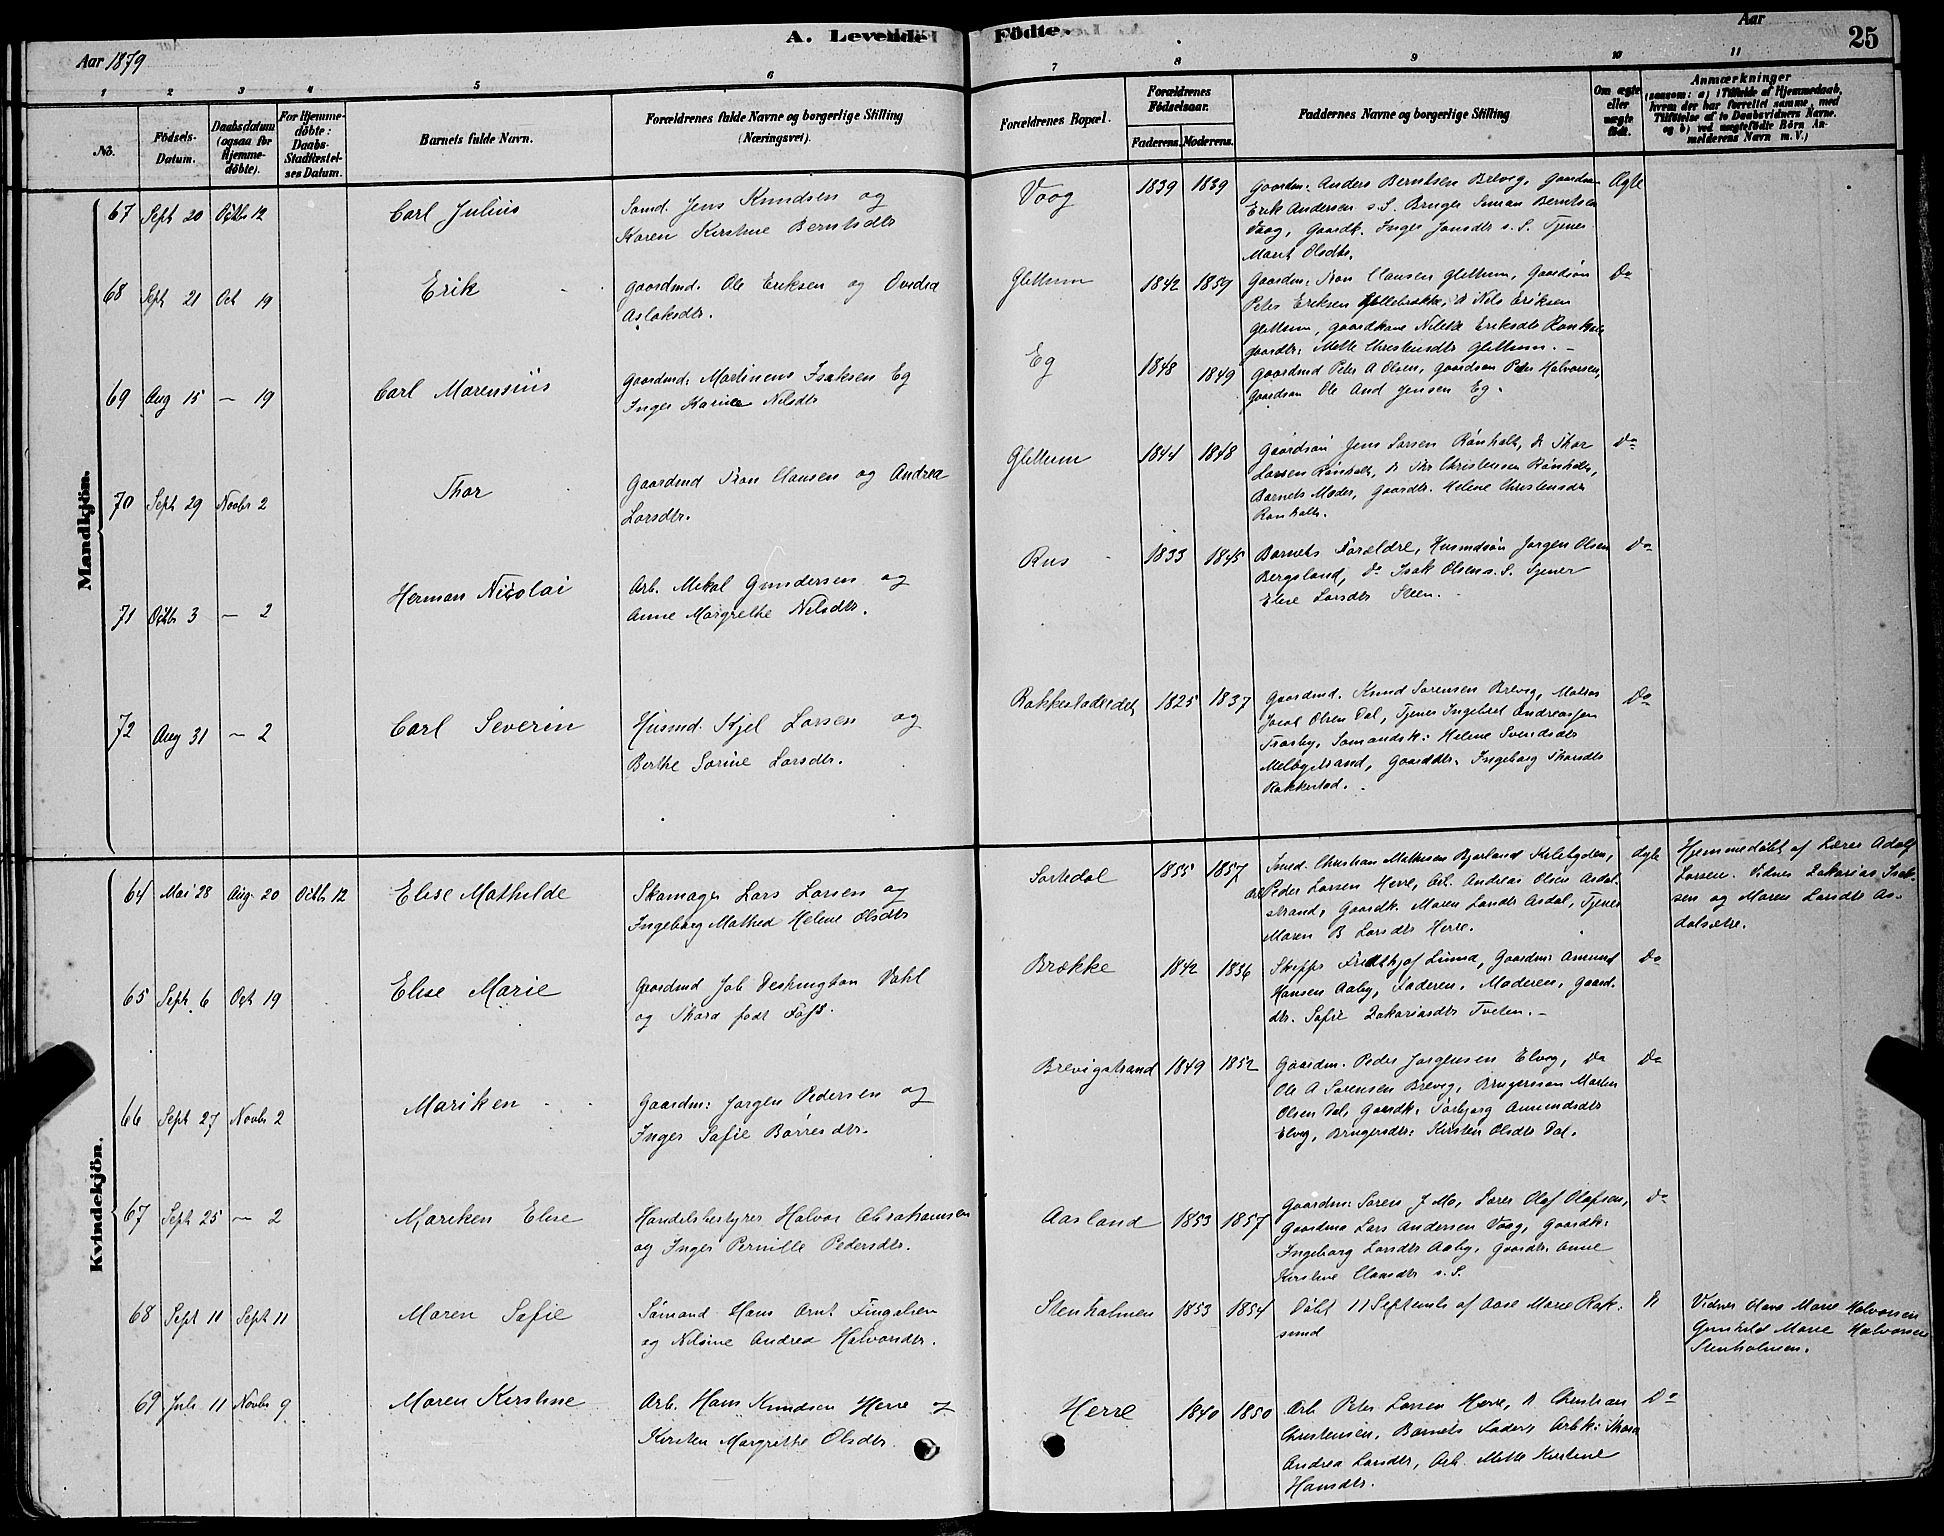 A. Levende Födte.
Aar 1879
Aar
25
1 2 3 4 5 6 7 8 9 10 11
No.
Födsels-Datum.
Daabsdatum (ogsaa for Hjemme-döbte).
For Hjemme-döbte: Daabs-Stadfæstel-ses Datum.
Barnets fulde Navn.
Forældrenes fulde Navne og borgerlige Stilling
(Næringsvei).
Forældrenes Bopæl.
Forældrenes Födselsaar.
Faderens. Moderens.
Faddernes Navne og borgerlige Stilling
Om ægte eller uægte födt.
Anmærkninger
(saasom: a) i Tilfælde af Hjemmedaab,
hvem der har forrettet samme, med
Tilföielse af to Daabsvidners Navne.
og b) ved uægtefödte Börn An-
melderens Navn m.V.)
Mandkjön.
67 Sept 20 Octbr 12 Carl Julius
Sømd. Jens Knudsen og
Karen Kirstine Berntsdtr
Voog 1839 1839
Gaardm: Anders Berntsen Brevig, Gaardm
Erik Andersen s. S. Bruger Simon Berntsen
Voog, Gaardk. Inger Jensdtr s. S. Tjener
Marit Olsdtr.
Ægte
68 Sept 21 Oct 19 Erik
Gaardmd. Ole Eriksen og
Aslaksdtr.
Glittum 1842 1859
Gaardm: Tron Clausen Glittum, Gaardsøn
Peter Eriksen, D Nils Eriksen
Glittum, Gaardkone Eriksdtr
Gaarddtr: Mette Christensdtr Glittum. -
Do
69 Aug 15 - 19 Carl Marensius
Gaardmd: Martinens Isaksen Eg
Inger Karine Nilsdtr
Eg 1848 1849
Gaardmd Peter A Olsen, Gaardsøn Peder Halvorsen,
Gaardsøn Ole And Jensen Eg.
70 Sept 29 Novbr 2 Thor
Gaardmd Tron Clausen og Andrea
Larsdtr.
Glittum 1844 1848
Gaardsøn Jens Larsen Rønholt, D Thor
Larsen Rønholt, D Thor Christensen Rønholt,
Barnets Moder, Gaarddtr. Helene Christensdtr
Rønholt.
Do
71 Octbr 3 - 2 Herman Nicolai
Arb. Mikal Gundersen og
Anne Margrethe Nilsdtr.
Rus 1833 1845
Barnets Forældre, Husmdsøn Jørgen Olsen
Bergsland, Do Isak Olsen s. S. Tjener
Elise Larsdtr Steen.
Do
72 Aug 31 - 2 Carl Severin
Husmd. Kjel Larsen og
Berthe Sørine Larsdtr.
Rakkestadeidet 1825 1837
Gaardmd. Knud Sørensen Brevig, Matros
Jacob Olsen Dal, Tjener Ingebret Andreassen
Trosby, Sømandsk: Helene Svendsdtr
Melbystrand, Gaarddtr. Ingeborg Thorsdtr
Rakkestad.
Do
Kvindekjön.
64 Mai 28 Aug. 20 Octbr 12 Elise Mathilde
Skomager Lars Larsen og
Ingeborg Mathea Helene Olsdtr
Sortedal 1855 1857
Smed. Christian Mathisen Bjørland Kilebygden,
Arb Peder Larsen Herre, Arb. Andreas Olsen Asdal-
strand, Gaardk. Maren Larsdtr Asdal, Tjener
Maren B Larsdtr Herre.
Ægte
Hjemmedøbt af Lærer Adolf
Larsen. Vidner Zakarias Isak-
sen og Maren Larsdtr As-
dalsætre.
65 Sept. 6 Oct 19 Elise Marie
Gaardmd Job Deskington Vahl
og Thora født
Brække 1842 1836
Skipper Fridthjof Lund, Gaardm: Amund
Hansen Aaby, Faderen, Moderen, Gaard-
dtr. Sofie Zakariasdtr Tveten. -
Do
66 Sept 27 Novbr 2 Mariken
Gaardm: Jørgen Pedersen og
Inger Sofie Børresdtr.
Brevigstrand 1849 1852
Gaardm: Peder Jørgensen Elvig, Do
Ole A Sørensen Brevig, Brugersøn Martin
Olsen Dal, Gaardk: Torbjørg Amundsdtr
Elvig, Brugersdtr: Kirsten Olsdtr Dal.
Do
67 Sept 25 - 2 Mariken Elise
Handelsbestyrer Halvor Abrahamsen
og Inger Pernille Pedersdtr.
Aasland 1853 1857
Gaardm: Søren J Mo, Lærer Olaf Olafsen,
Gaardmd Lars Andersen Voog, Gaardk:
Ingeborg Larsdtr Aaby, Gaarddtr. Anne
Kirstine Clausdtr s. S.
Do
68 Sept 11 Sept 11 Maren Sofie
Sømand Hans Arnt Fingalsen
og Nilsine Andrea Halvorsdtr.
Stenholmen 1853 1854
Døbt 11 September af Aase Marie Rak-
sund
D
Vidner Marie Halvorsen
Gunhild Marie Halvorsen
Stenholmen.
69 Juli 11 Novbr 9 Maren Kirstine
Arb. Hans Knudsen Herre og
Kirsten Margrethe Olsdtr
Herre 1840 1850
Arb Peter Larsen Herre, D Christian
Christensen, Barnets Fader, Arbk: Thora
Andrea Larsdtr, Arb. Mette Kirstine
Hansdtr.
Do